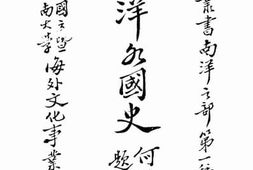 叢書南洋之部第一種
洋各國史
何
題
國立暨
南大學
海外文化事業